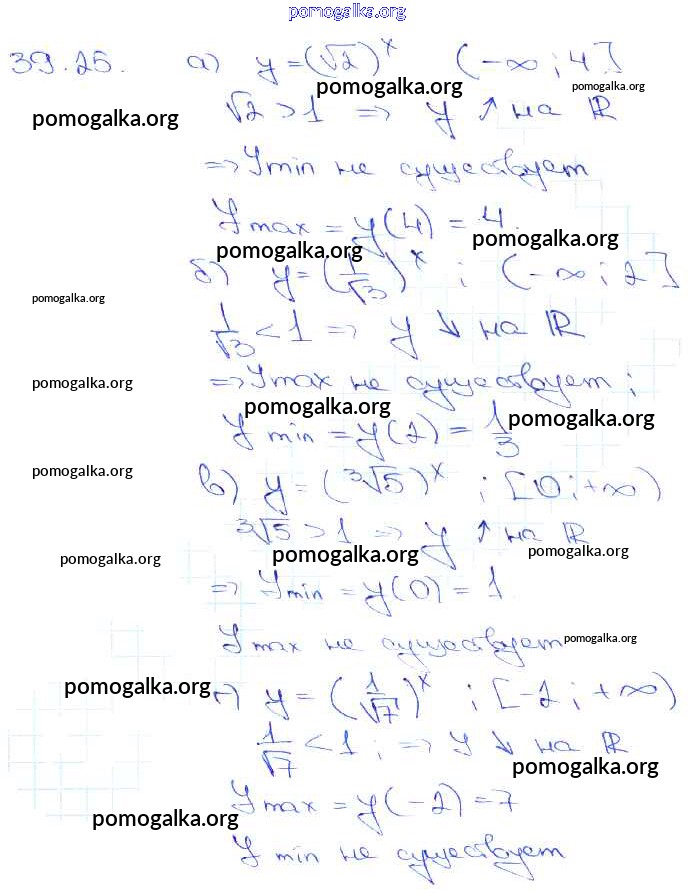 pomogalka.org
39.25. а) y = (√2)^x (-∞; 4]
pomogalka.org pomogalka.org
√2 > 1 => y ↑ на ℝ
pomogalka.org
=> y min не существует
y max = y(4) = 4.
pomogalka.org pomogalka.org
б) y = (1/√3)^x ; (-∞; 2]
pomogalka.org
1/√3 < 1 => y ↓ на ℝ
pomogalka.org => y max не существует;
pomogalka.org pomogalka.org
y min = y(2) = 1/3
pomogalka.org
в) y = (³√5)^x ; [0; +∞)
³√5 > 1 => y ↑ на ℝ
pomogalka.org pomogalka.org pomogalka.org
=> y min = y(0) = 1.
y max не существует pomogalka.org
pomogalka.org
г) y = (1/√7)^x ; [-2; +∞)
1/√7 < 1; => y ↓ на ℝ
pomogalka.org
y max = y(-2) = 7
pomogalka.org
y min не существует